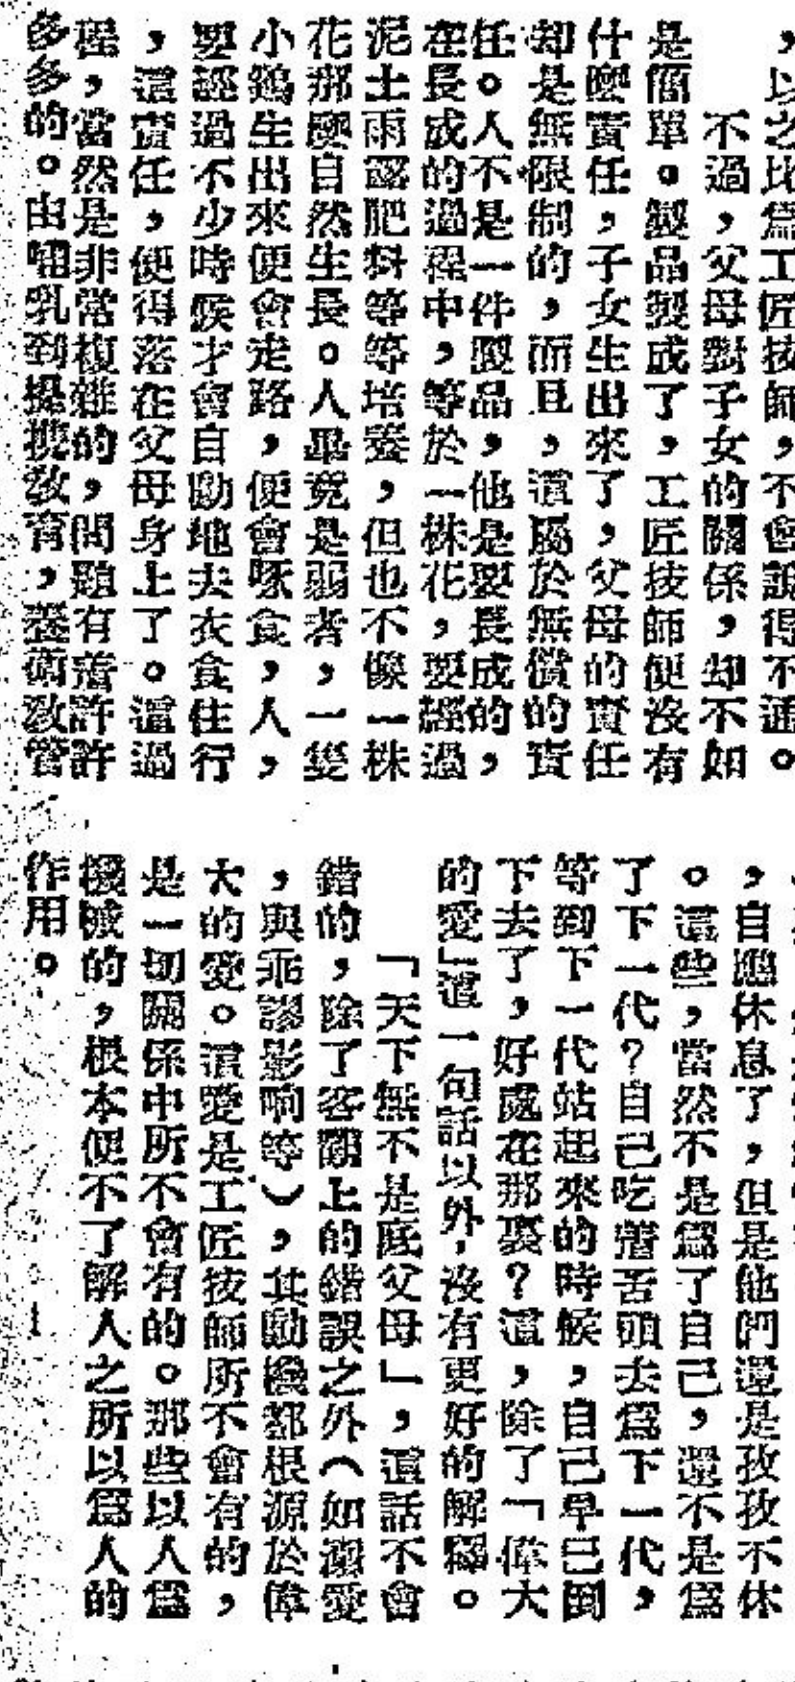 ，以之比爲工匠技師，不會說得不通。
不過，父母對子女的關係，却不如
是簡單。製品製成了，工匠技師便沒有
什麼責任，子女生出來了，父母的責任
却是無限制的，而且，這屬於無償的責
任。人不是一件製品，他是要長成的，
在長成的過程中，等於一株花，要經過
泥土雨露肥料等等培養，但也不像一株
花那麼自然生長。人畢竟是弱者，一隻
小鷄生出來便會走路，便會啄食，人，
要經過不少時候才會自動地去衣食住行
，這責任，便得落在父母身上了。這過
程，當然是非常複雜的，問題有着許許
多多的。由哺乳到提携敎育，養衛敎管
，自應休息了，但是他們還是孜孜不休
。這些，當然不是爲了自己，還不是爲
了下一代？自己吃着苦頭去爲下一代，
等到下一代站起來的時候，自己早已倒
下去了，好處在那裏？這，除了「偉大
的愛」這一句話以外，沒有更好的解釋。
「天下無不是底父母」，這話不會
錯的，除了客觀上的錯誤之外（如溺愛
，與乖謬影响等），其動機都根源於偉
大的愛。這愛是工匠技師所不會有的，
是一切關係中所不會有的。那些以人爲
機械的，根本便不了解人之所以爲人的
作用。